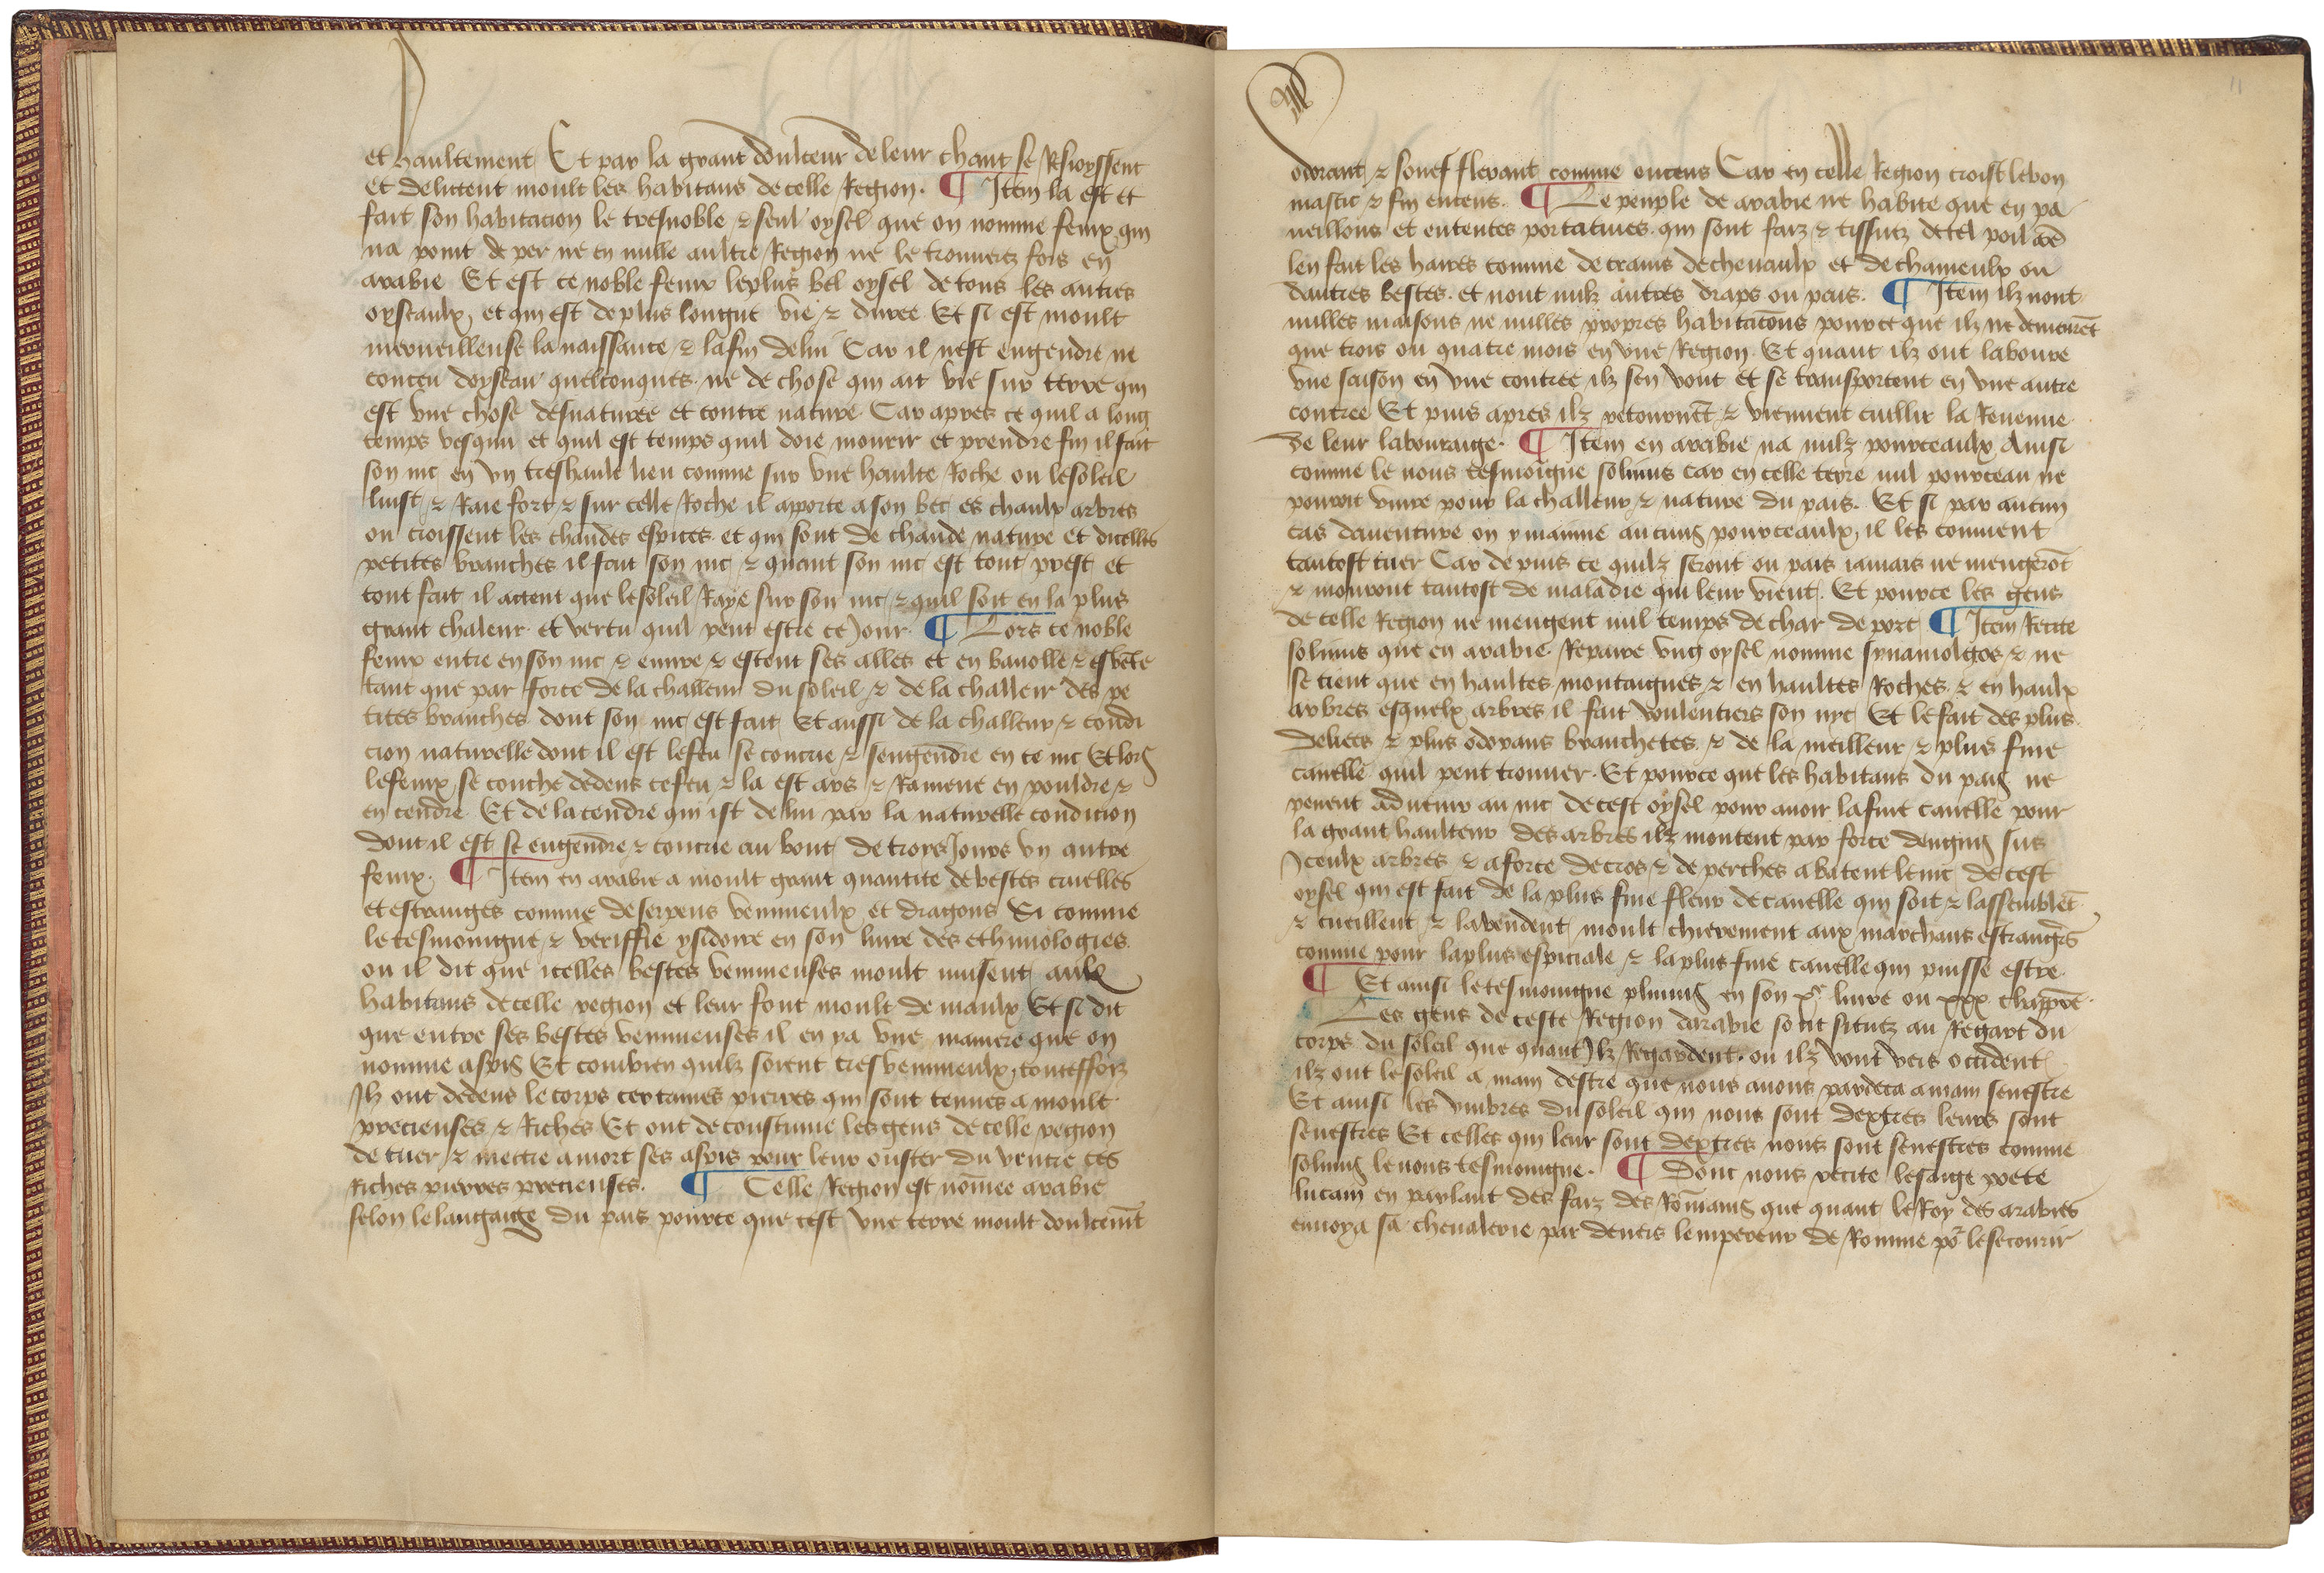 et haultement Et par la grant doulceur de leur chant se Resioyssent
et delictent moult les habitans de celle Region. ¶ Item la est et
fait son habitacion le tresnoble & seul oysel que on nomme fenix qui
na point de per ne en nulle aultre Region ne le trouverez fors en
arabie Et est ce noble fenix le plus bel oysel de tous les autres
oyseaulx et qui est de plus longue vie & duree Et si est moult
merveilleuse la naissance & la fin de lui Car il nest engendre ne
conceu doyseau quelconques. ne de chose qui ait vie sur terre qui
est une chose desnaturee et contre nature. Car apres ce quil a long
temps vesqui et quil est temps quil doie mourir et prendre fin il fait
son nic en un treshault lieu comme sur une haulte Roche ou le soleil
luist & Raie fort & sur celle Roche il aporte a son bec es chaulx arbres
ou croissent les chaudes espices et qui sont de chaude nature et dicelles
petites branches il fait son nic & quant son nic est tout prest et
tout fait il actent que le soleil Raye sur son nic & quil soit en la plus
grant chaleur et vertu quil peut estre ce Jour. ¶ Lors ce noble
fenix entre en son nic & euvre & estent ses alles et en bauolle & esbete
tant que par force de la challeur du soleil & de la challeur des pe
tites branches dont son nic est fait Et aussi de la challeur & condi
cion naturelle dont il est le feu se concue & sengendre en ce nic Et lors
le fenix se couche dedens ce feu & la est ars & Ramene en pouldre &
en cendre Et de la cendre qui ist de lui par la naturelle condicion
dont il est se engendre & concue au bout de troys Jours un autre
fenix. ¶ Item en arabie a moult grant quantite de bestes cruelles
et estranges comme de serpens venimeulx et dragons Si comme
le tesmoingne & veriffie ysidore en son livre des ethimologies.
ou il dit que icelles bestes venimeuses moult nuisent aulx
habitans de celle region et leur font moult de maulx Et si dit
que entre ses bestes venimeuses il en ya une maniere que on
nomme aspis Et combien quilz soient tres venimeulx, touteffoiz
Ilz ont dedens le corps certaines pierres qui sont tenues a moult
precieuses & Riches Et ont de coustume les gens de celle region
de tuer & mectre a mort ses aspis pour leur ouster du ventre ces
Riches pierres precieuses. ¶ Celle Region est nommee arabie
selon le langaige du pais pource que cest une terre moult doulcemt
odorant & souef flerant comme encens Car en celle Region croist le bon
mastic & fin encens. ¶ Le peuple de arabie ne habite que en pa
veillons et en tentes portatives qui sont faiz & tissutz de tel poil
len fait les haires comme de crains de chevaulx et de chameulx ou
dautres bestes. et nont nulz autres draps ou peus. ¶ Item ilz nont
nulles maisons ne nulles propres habitacons pource que ilz ne demeurēt
que trois ou quatre mois en une Region. Et quant ilz ont laboure
une saison en une contree ilz sen vont et se transportent en une autre
contree Et puis apres ilz retournēt & viennent cuillir la Revenue
de leur labouraige. ¶ Item en arabie na nulz pourceaulx Ainsi
comme le nous tesmoigne solinus car en celle terre nul pourceau ne
pouroit vivre pour la challeur & nature du pais. Et si par aucun
cas daventure on y mainne aucuns pourceaulx, il les convient
tantost tuer Car depuis ce quilz seront ou pais iamais ne mengerōt
& mourront tantost de maladie qui leur vient. Et pource les gens
de celle Region ne mengent nul temps de char de porc ¶ Item Recite
solinus que en arabie Repaire ung oysel nomme synamolgos & ne
se tient que en haultes montaignes & en haultes Roches. & en haulx
arbres esquelx arbres il fait voulentiers son nyc Et le fait des plus
deliees & plus odorans branchetes. & de la meilleur & plus fine
canelle quil peut trouver. Et pource que les habitans du pais ne
peuent advenir au nic de cest oysel pour avoir la fine canelle pour
la grant haulteur des arbres ilz montent par force dengins sus
Iceulx arbres & a force de cros & de perches abatent le nic de cest
oysel qui est fait de la plus fine fleur de canelle qui soit & lassemblēt
& cueillent & la vendent moult chierement aux marchans estrangers
comme pour la plus especiale & la plus fine canelle qui puisse estre.
¶ Et ainsi le tesmoingne plinius en son xe livre ou xxx. chappre.
Les gens de ceste Region darabie sont situez au Regart du
corps du soleil que quant Ilz Regardent. ou ilz vont vers occident
ilz ont le soleil a main destre que nous avons pardeca a main senestre
Et ainsi les umbres du soleil qui nous sont dextres leurs sont
senestres Et celles qui leur sont dextres nous sont senestres comme
solinus le nous tesmoingne. ¶ Donc nous recite le saige poete
lucain en parlant des faiz des Rommains que quant le Roy des arabes
envoya sa chevalerie par devers lempereur de Romme por le secourir